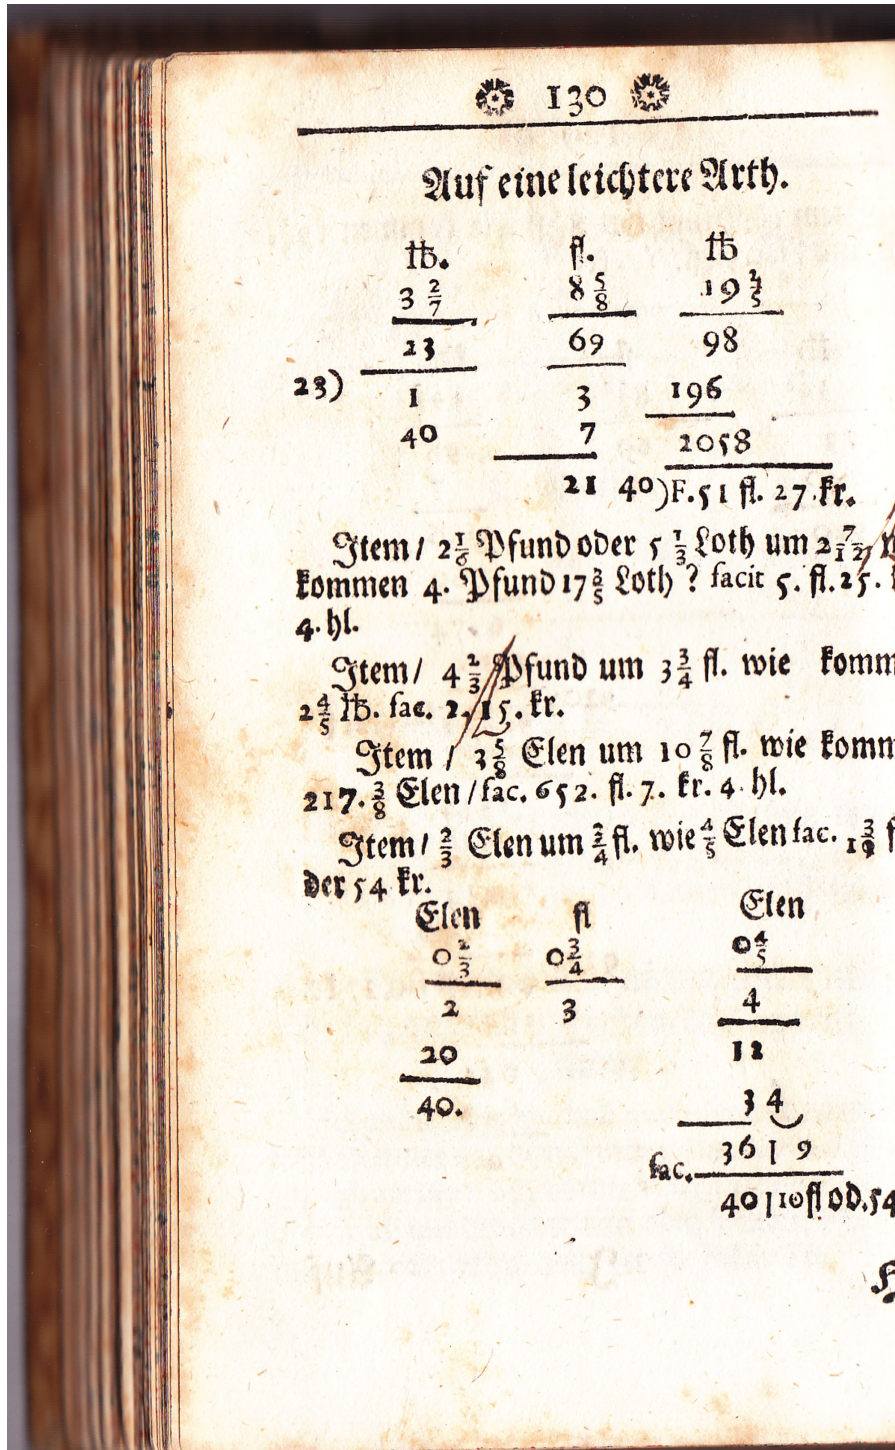 130
Auf eine leichtere Arth.
℔. fl. ℔
3 2/7 8 5/8 19 3/5
23 69 98
23) 1 3 196
40 7 2058
21 40) F. 51 fl. 27. kr.
Item / 2 1/6 Pfund oder 5 1/3 Loth um 2 7/12
kommen 4. Pfund 17 3/5 Loth ? facit 5. fl. 25.
4. hl.
Item / 4 2/3 Pfund um 3 3/4 fl. wie komm
2 4/5 ℔. fac. 2. 15. kr.
Item / 3 5/8 Elen um 10 7/8 fl. wie komm
217. 3/8 Elen / fac. 652. fl. 7. kr. 4. hl.
Item / 2/3 Elen um 3/4 fl. wie 4/5 Elen fac.
der 54 kr.
Elen fl Elen
0 2/3 0 3/4 0 4/5
2 3 4
20 12
40. 3 4
fac. 36 | 9
40 | 10 fl od. 54